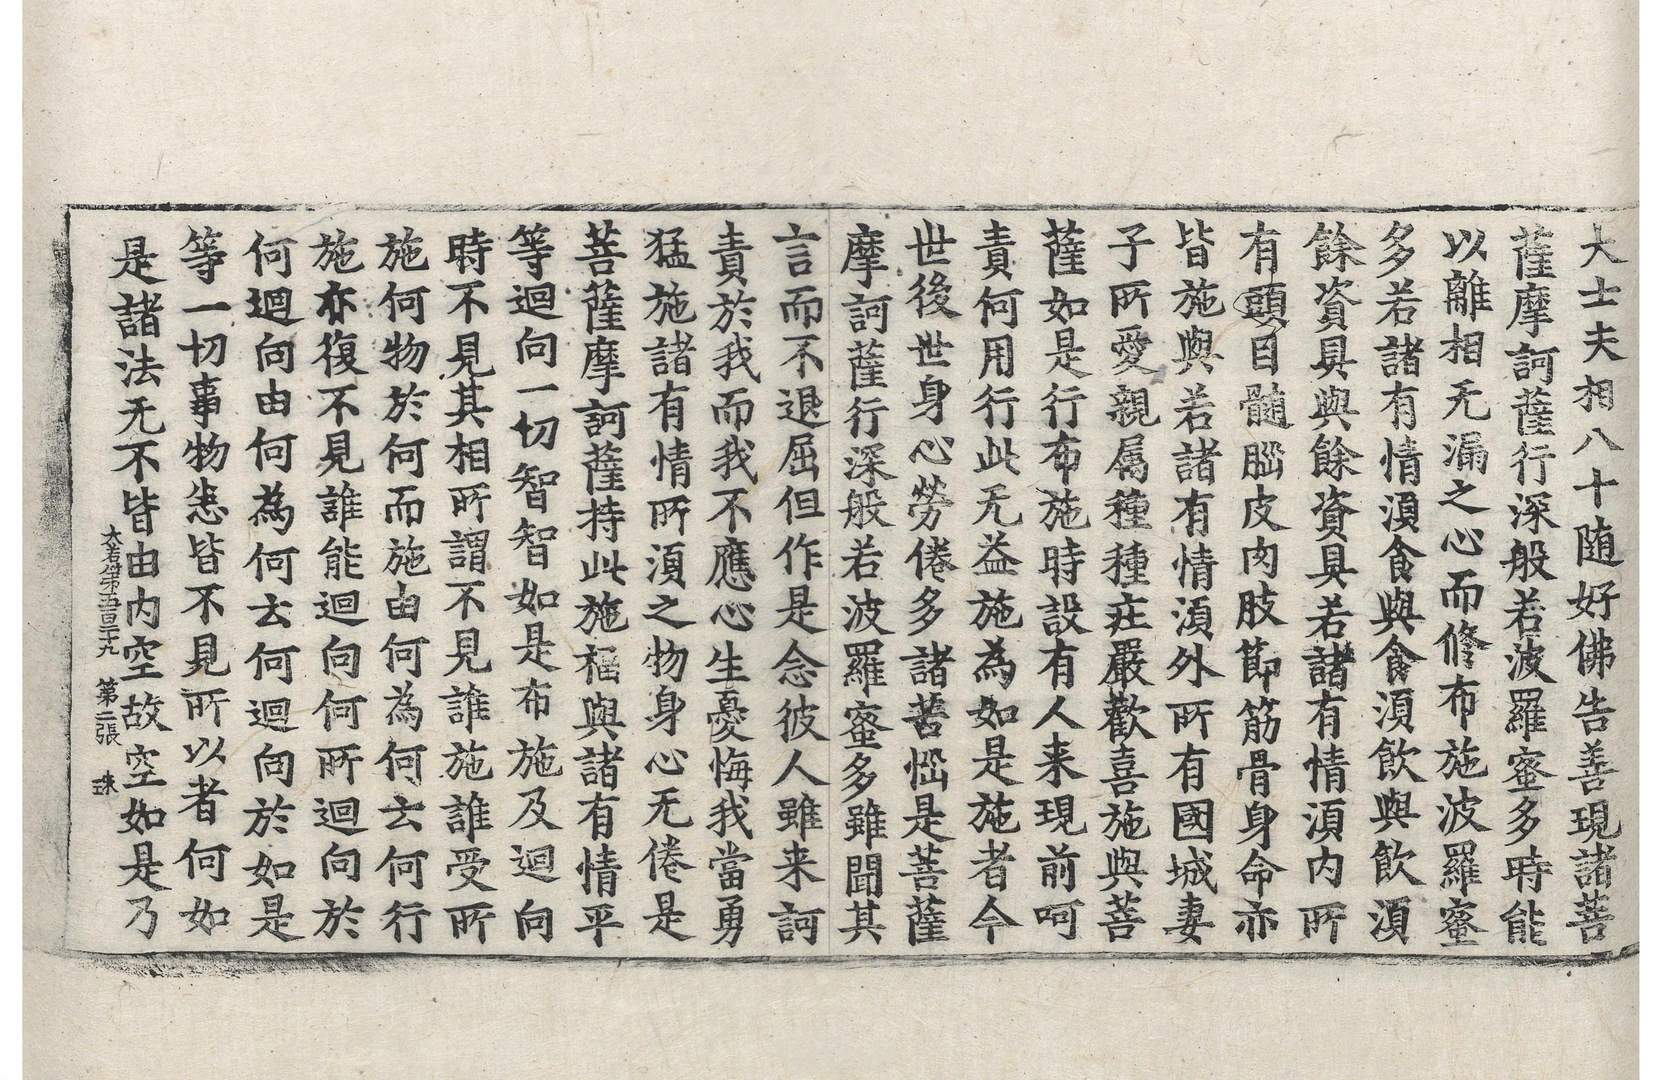 大士夫相八十随好佛告善現諸菩
薩摩訶薩行深般若波羅蜜多時能
以離相无漏之心而修布施波羅蜜
多若諸有情湏食與食湏飲與飲湏
餘資具與餘資具若諸有情湏内所
有頭目髓腦皮肉肢節筋骨身命亦
皆施與若諸有情湏外所有國城妻
子所愛親屬種種莊嚴歡喜施與菩
薩如是行布施時設有人来現前呵
責何用行此无益施為如是施者今
世後世身心勞倦多諸苦惱是菩薩
摩訶薩行深般若波羅蜜多雖聞其
言而不退屈但作是念彼人雖来訶
責於我而我不應心生憂悔我當勇
猛施諸有情所湏之物身心无倦是
菩薩摩訶薩持此施福與諸有情平
等迴向一切智智如是布施及迴向
時不見其相所謂不見誰施誰受所
施何物於何而施由何為何云何行
施亦復不見誰能迴向何所迴向於
何迴向由何為何云何迴向於如是
等一切事物悉皆不見所以者何如
是諸法无不皆由内空故空如是乃
大般若第五百二十九 第二張 珠